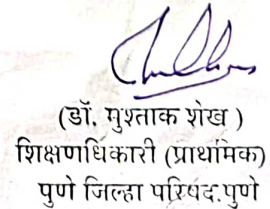 (डॉ. मुश्ताक शेख )
शिक्षणाधिकारी (प्राथमिक)
पुणे जिल्हा परिषद.पुणे